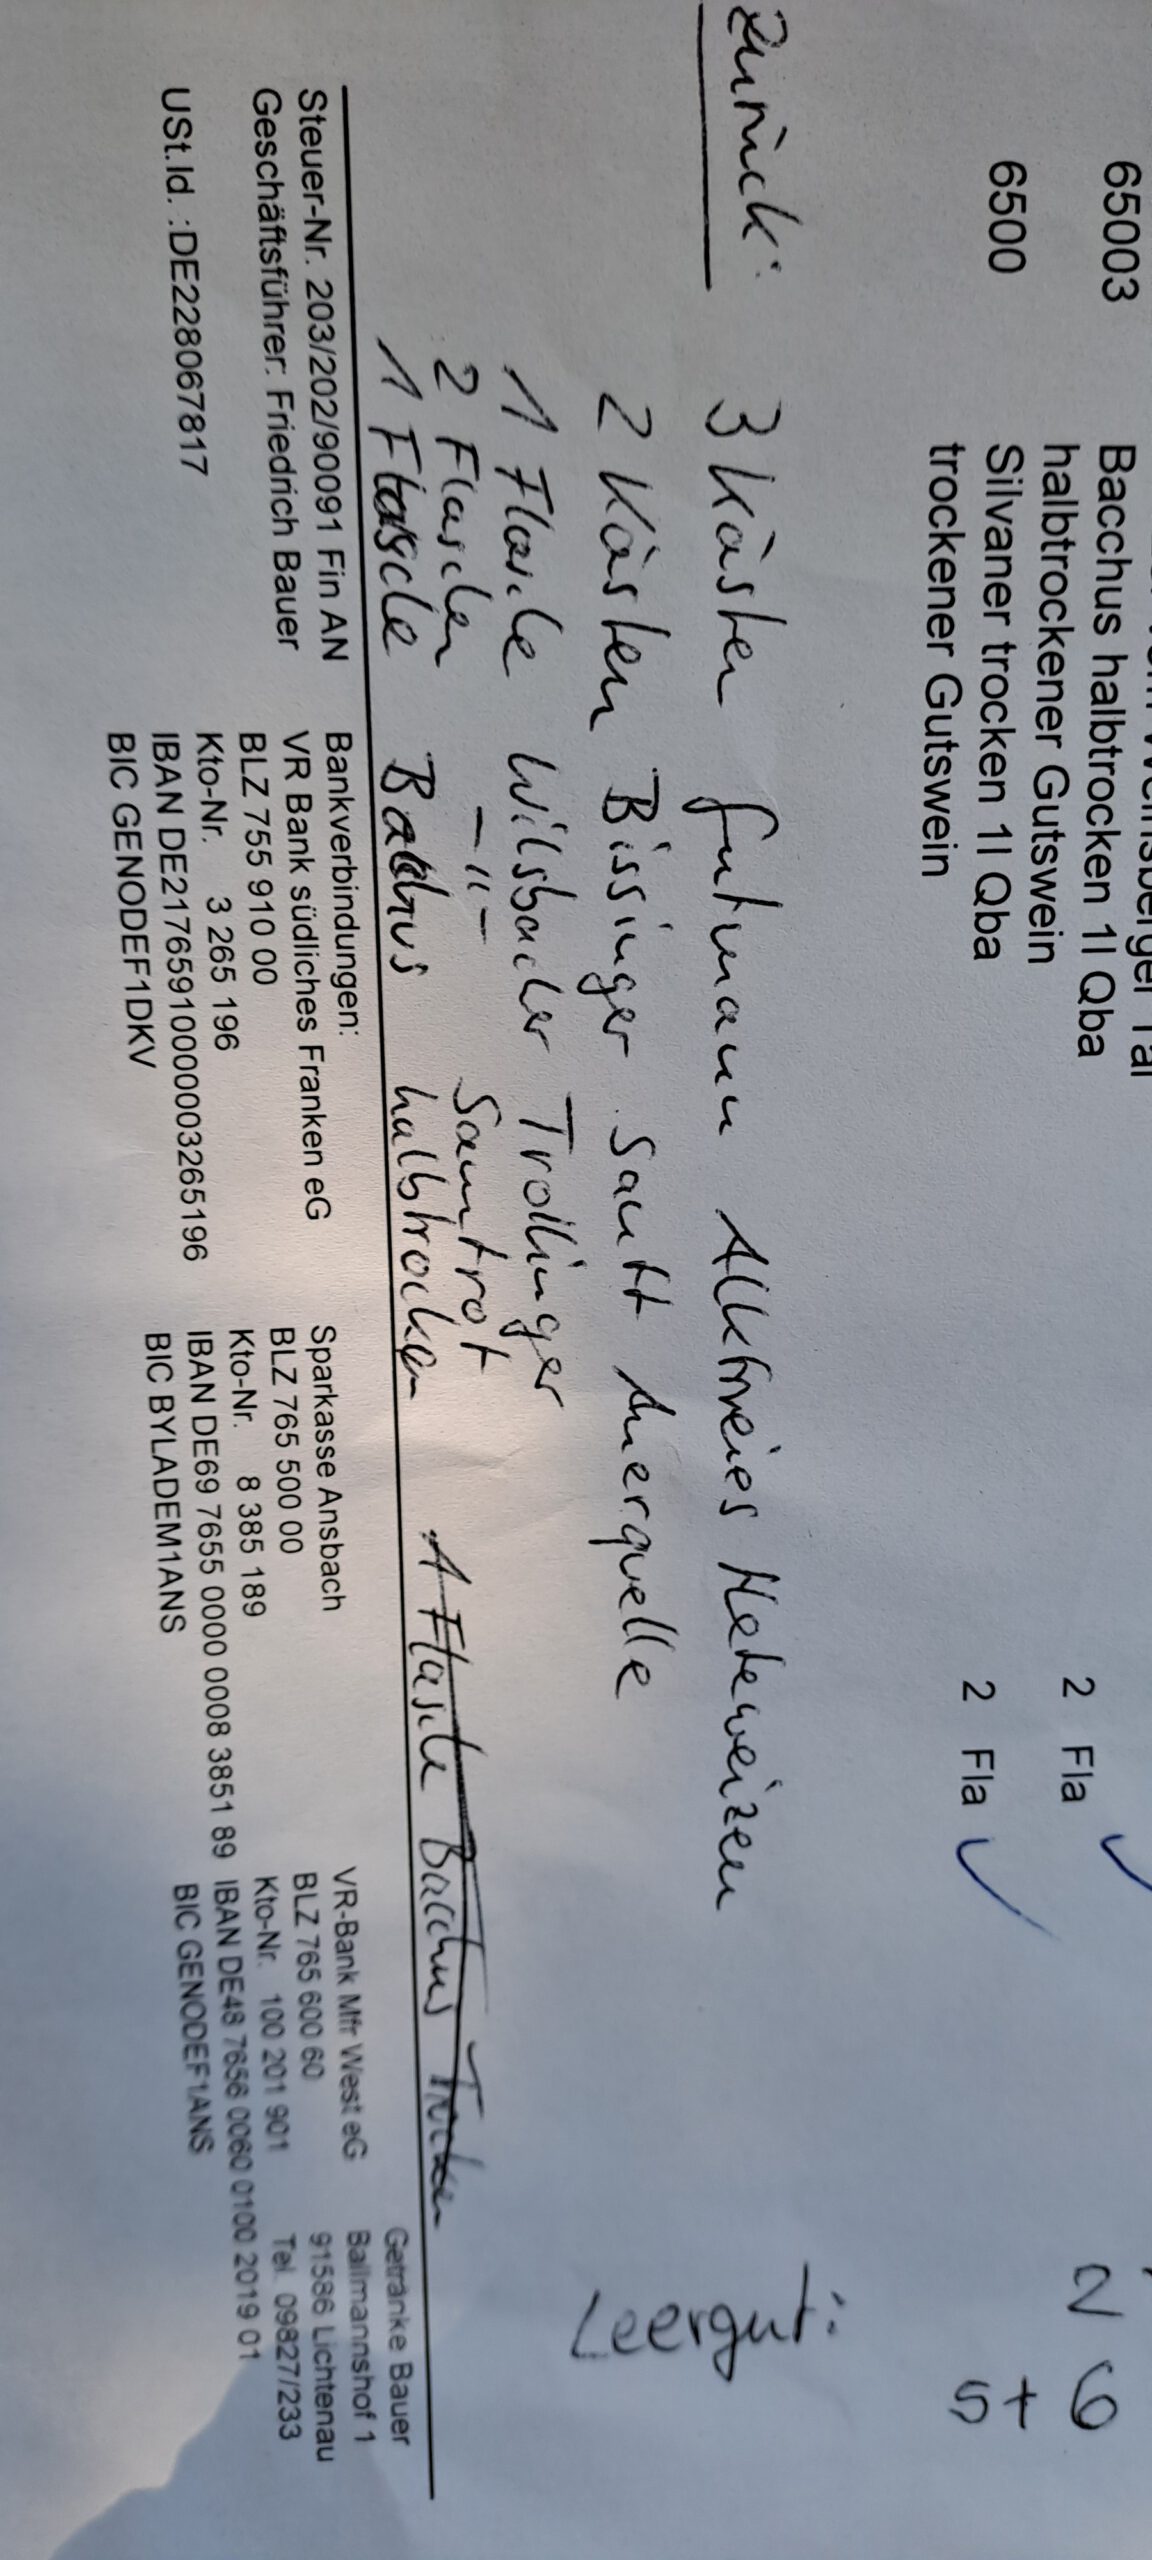 65003 Bacchus halbtrocken 1l Qba 2 Fla
halbtrockener Gutswein
6500 Silvaner trocken 1l Qba 2 Fla
trockener Gutswein
2 6
5+
Leergut:
zurück:
3 Kästen Gutmann Alkfreies Hefeweizen
2 Kästen Bissinger sanft Auerquelle
1 Flasche Wilsbacher Trollinger
2 Flaschen -"- Samtrot
1 Flasche Bachus halbtrocken
1 Flasche Bacchus Trocken
Steuer-Nr. 203/202/90091 Fin AN
Geschäftsführer: Friedrich Bauer
USt.Id. :DE228067817
Bankverbindungen:
VR Bank südliches Franken eG
BLZ 755 910 00
Kto-Nr. 3 265 196
IBAN DE21765910000003265196
BIC GENODEF1DKV
Sparkasse Ansbach
BLZ 765 500 00
Kto-Nr. 8 385 189
IBAN DE69 7655 0000 0008 3851 89
BIC BYLADEM1ANS
VR-Bank Mfr West eG
BLZ 765 600 60
Kto-Nr. 100 201 901
IBAN DE48 7656 0060 0100 2019 01
BIC GENODEF1ANS
Getränke Bauer
Ballmannshof 1
91586 Lichtenau
Tel. 09827/233